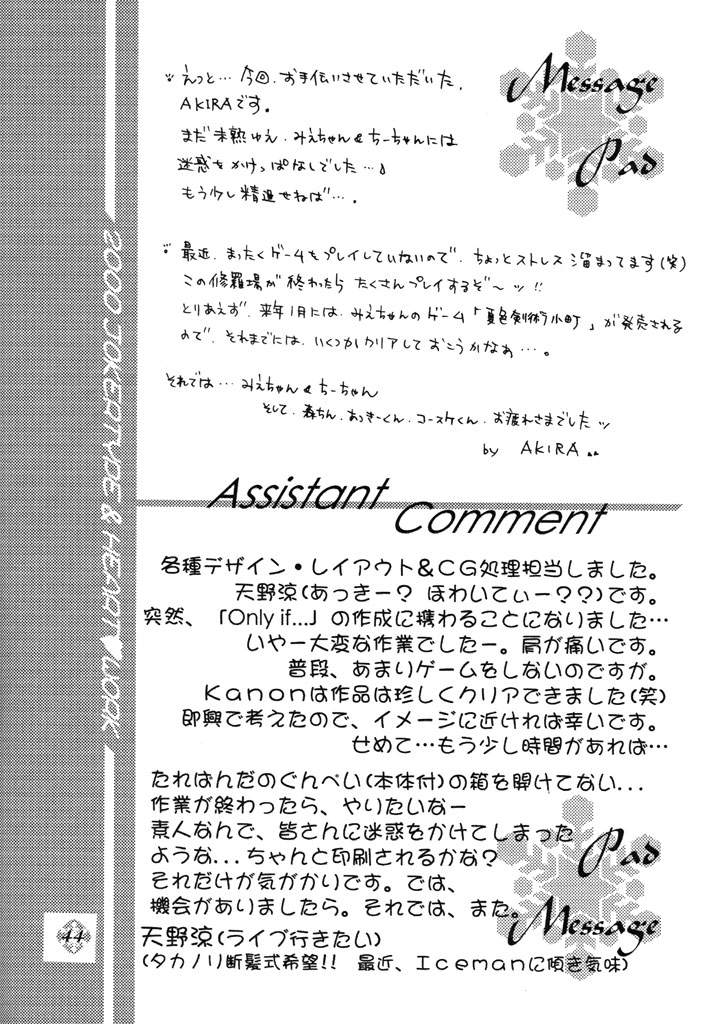 Message
Pad
えっと… 今回、お手伝いさせていただいた、
AKIRAです。
まだ未熟ゆえ、みえちゃん&ちーちゃんには
迷惑をかけっぱなしでした…♪
もう少し精進せねば…。
最近、まったくゲームをプレイしていないので、ちょっとストレス溜まってます(笑)
この修羅場が終わったら たくさんプレイするぞ〜ッ!!
とりあえず、来年1月には、みえちゃんのゲーム「夏色剣術小町」が発売される
ので、それまでには、いくつかクリアしておこうかなぁ…。
それでは… みえちゃん&ちーちゃん
そして、森ちん、あっきーくん、コースケくん、お疲れさまでしたッ
by AKIRA
2000 JOKERTYPE & HEART♥WORK
Assistant
Comment
各種デザイン・レイアウト&CG処理担当しました。
天野涼(あっきー? ほわいてぃー??)です。
突然、「Only if...」の作成に携わることになりました…
いやー大変な作業でしたー。肩が痛いです。
普段、あまりゲームをしないのですが。
Kanonは作品は珍しくクリアできました(笑)
即興で考えたので、イメージに近ければ幸いです。
せめて…もう少し時間があれば…
たれぱんだのぐんぺい(本体付)の箱を開けてない...
作業が終わったら、やりたいなー
素人なんで、皆さんに迷惑をかけてしまった
ような...ちゃんと印刷されるかな?
それだけが気がかりです。では、
機会がありましたら。それでは、また。
天野涼(ライブ行きたい)
(タカノリ断髪式希望!! 最近、Icemanに傾き気味)
Pad
Message
44